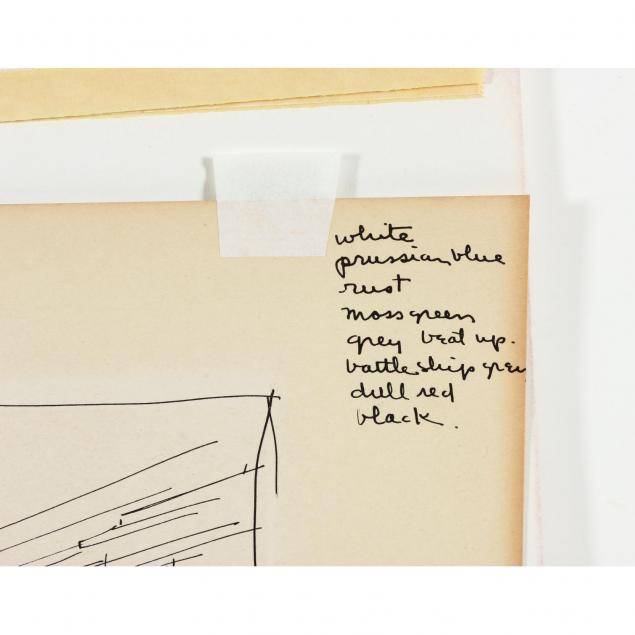 white
prussian blue
rust
moss green
grey beat up.
battleship grey
dull red
black.